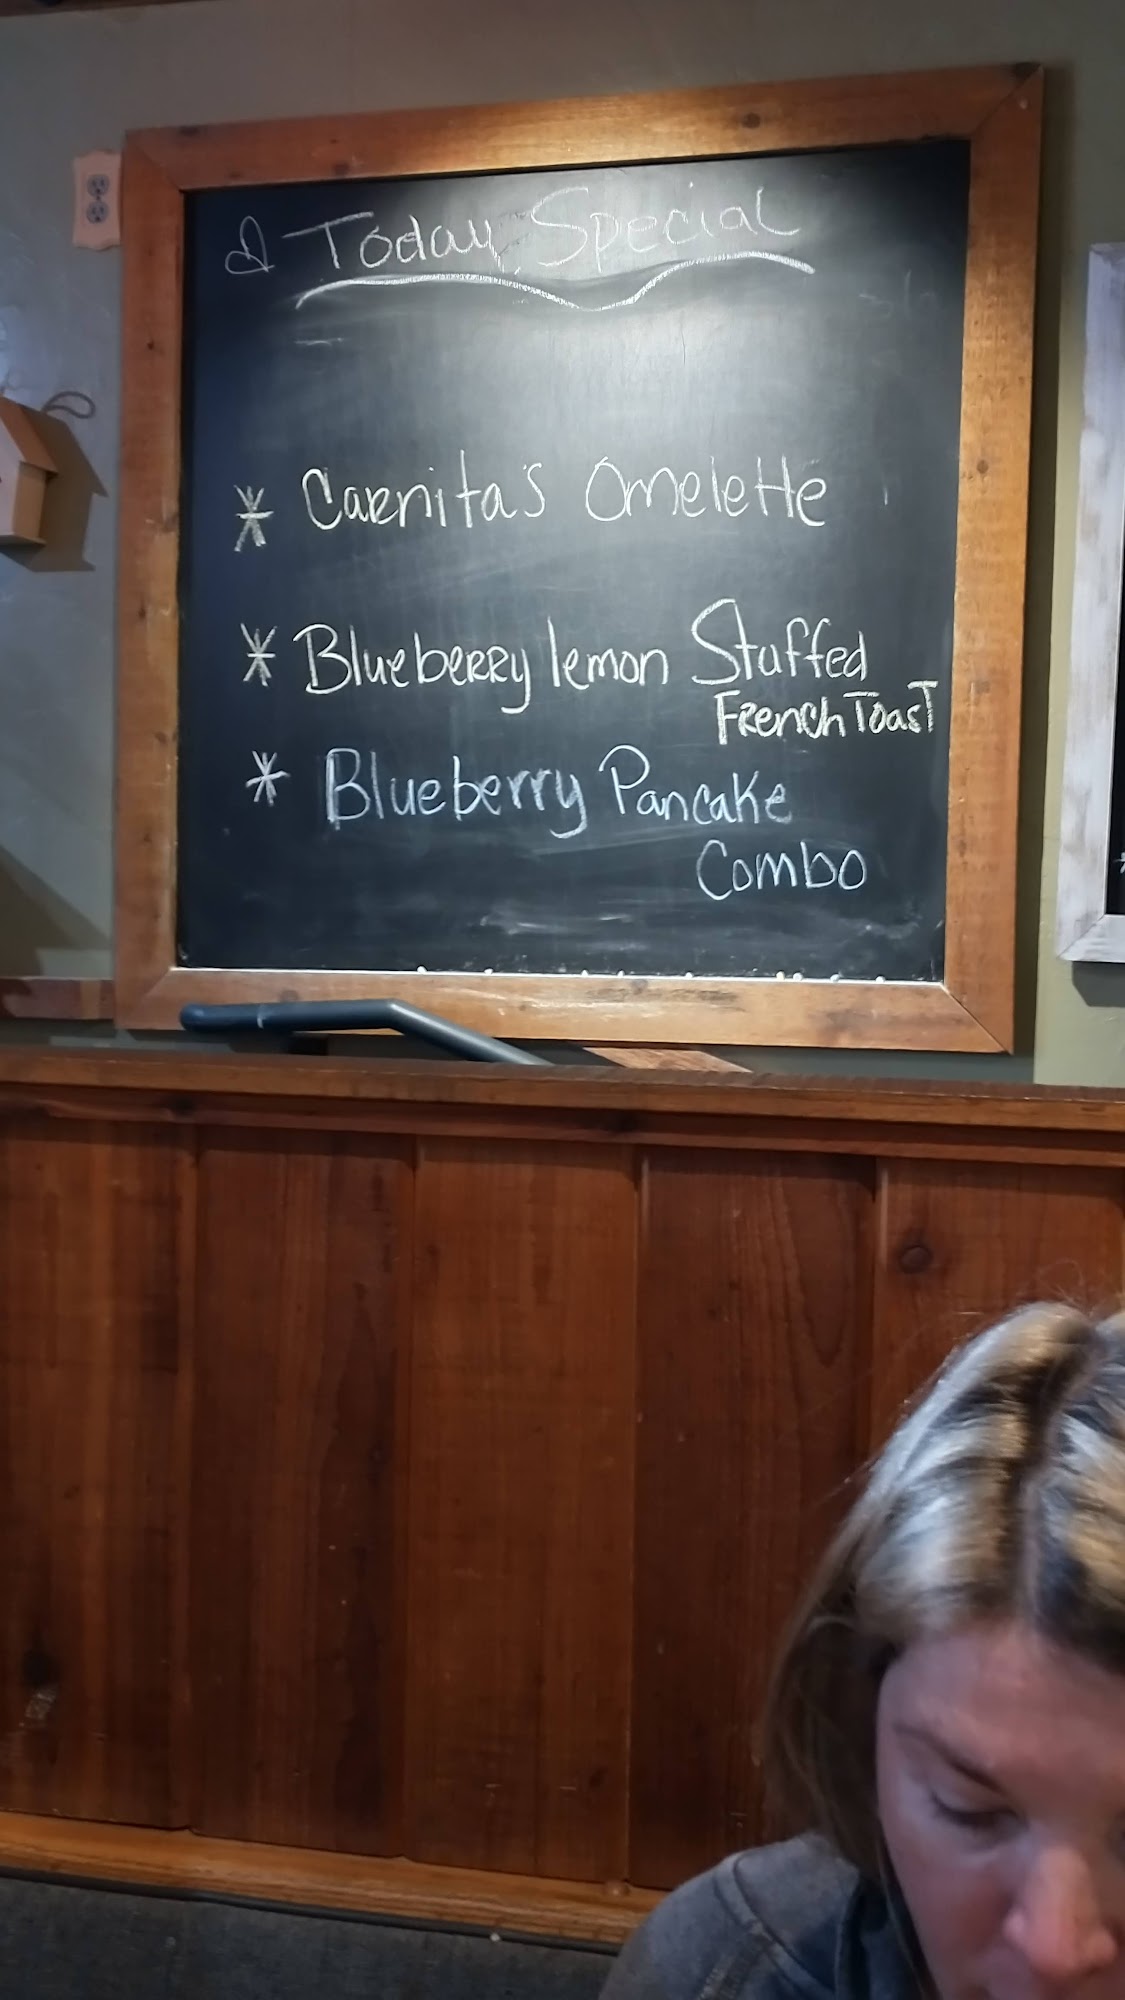 Today Special
* Carnita's Omelette
* Blueberry lemon Stuffed
French Toast
* Blueberry Pancake
Combo